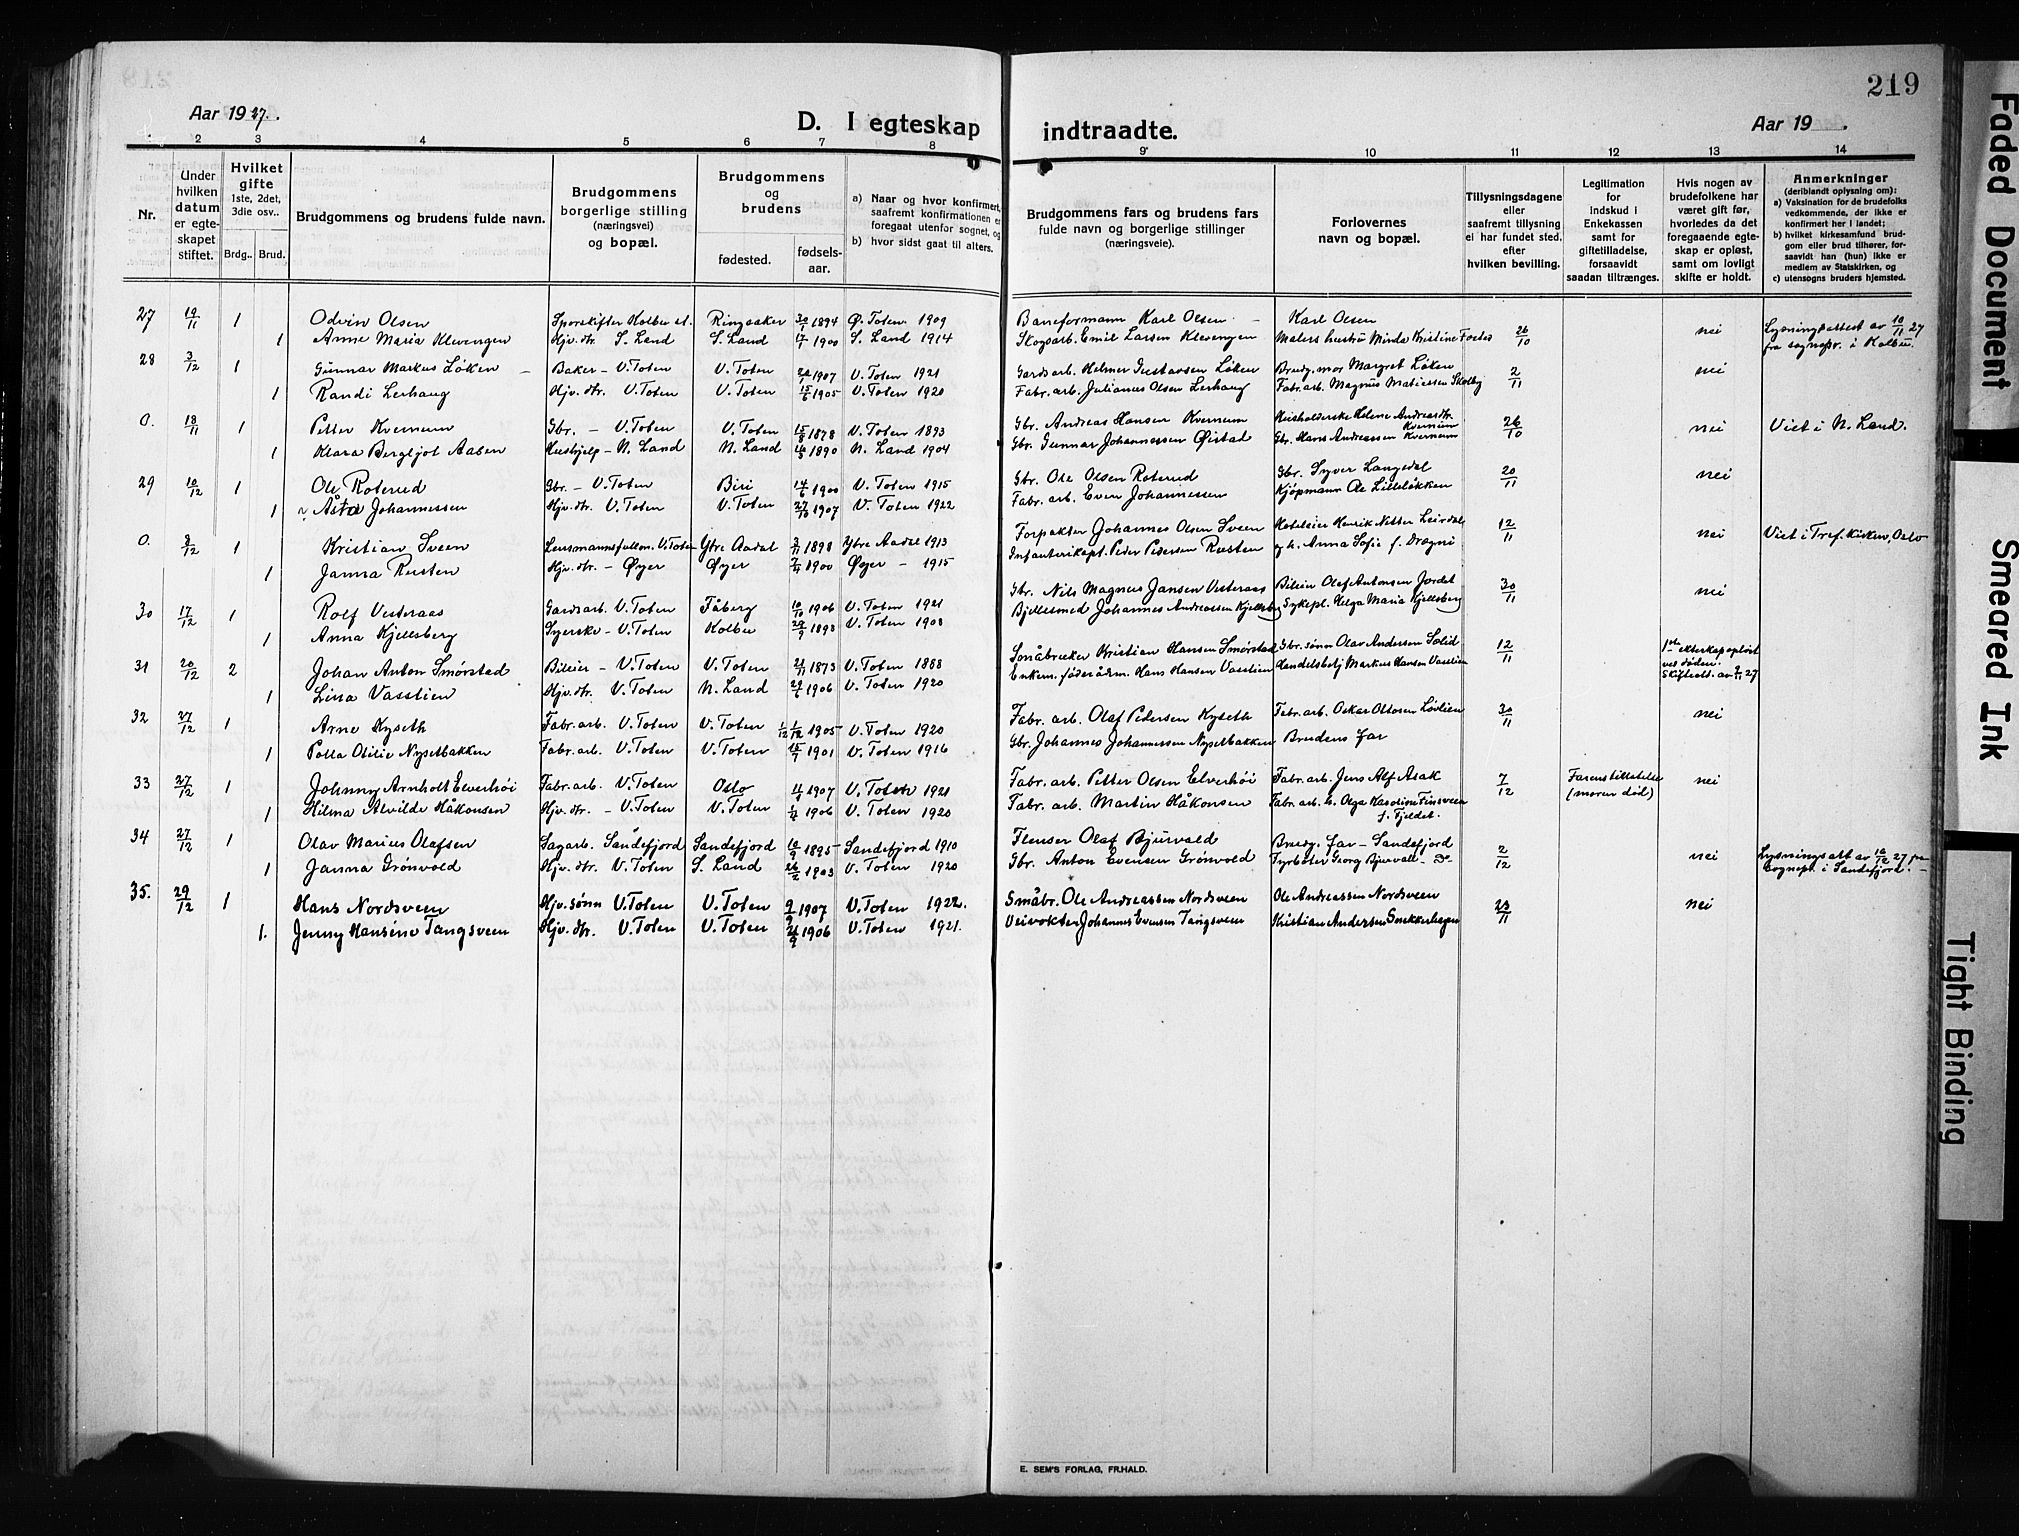 219
Aar 1927.
D. I egteskap indtraadte.
Aar 19 .
1 2 3 4 5 6 7 8 9 10 11 12 13 14
Nr.
Under hvilken datum er egteskapet stiftet.
Hvilket gifte 1ste, 2det, 3die osv..
Brdg.. Brud.
Brudgommens og brudens fulde navn.
Brudgommens borgerlige stilling (næringsvei) og bopæl.
Brudgommens og brudens
fødested.
fødselsaar.
a) Naar og hvor konfirmert, saafremt konfirmationen er foregaat utenfor sognet, og
b) hvor sidst gaat til alters.
Brudgommens fars og brudens fars fulde navn og borgerlige stillinger (næringsveie).
Forlovernes navn og bopæl.
Tillysningsdagene eller saafremt tillysning ei har fundet sted. efter hvilken bevilling.
Legitimation for indskud i Enkekassen samt for giftetilladelse, forsaavidt saadan tiltrænges.
Hvis nogen av brudefolkene har været gift før, hvorledes da det foregaaende egteskap er opløst, samt om lovligt skifte er holdt.
Anmerkninger (deriblandt oplysning om): a) Vaksination for de brudefolks vedkommende, der ikke er konfirmert her i landet; b) hvilket kirkesamfund brudgom eller brud tilhører, forsaavidt han (hun) ikke er medlem av Statskirken, og c) utensogns bruders hjemsted.
27 19/11 1 Odvin Olsen Sporskifter Kolbu st. Ringsaker 30/1 1894 Ø. Toten 1909 Baneformann Karl Olsen Karl Olsen
1 Anne Maria Klevengen Hjv. dtr. S. Land S. Land 17/1 1900 S. Land 1914 Skogsarb. Emil Larsen Klevengen Malers hustru Minda Kristine 26/10 nei Lysningsattest av 10/11 27 fra sognepr. i Kolbu.
28 3/12 1 Gunnar Markus Løken Baker - V. Toten V. Toten 1907 V. Toten 1921 Gardsarb. Helmer Gustavsen Løken Brudg. mor Margret Løken 2/11 nei
1 Randi Lerhaug Hjv. dtr. V. Toten V. Toten 15/6 1905 V. Toten 1920 Fabr. arb. Julianus Olsen Lerhaug Fabr. arb. Magnus Matiessen Skolby
0. 18/11 1 Petter Kvernum Gbr. - V. Toten V. Toten 15/8 1878 V. Toten 1893 Gbr. Andreas Hansen Kvernum Husholderske Helene Andreasdtr. Kvernum 26/10 nei Viet i N. Land.
1 Klara Bergljot Aasen Hushjelp - N. Land N. Land 1890 N. Land 1904 Gbr. Gunnar Johannessen Øistad Gbr. Hans Andreassen Kvernum
29 10/12 1 Ole Roterud Gbr. - V. Toten Biri 14/6 1900 V. Toten 1915 Gbr. Ole Olsen Roterud Gbr. Syver Langsdal 20/11 nei
1 Åsta Johannessen Hjv. dtr. V. Toten V. Toten 27/10 1907 V. Toten 1922 Fabr. arb. Even Johannessen Kjøpmann Ole Lilleløkken
0. 8/12 1 Kristian Sveen Lensmannsfullm. V. Toten Ytre Aadal 3/11 1898 Ytre Aadal 1913 Forpakter Johannes Olsen Sveen Hoteleier Henrik Nitter Leirdal 12/11 nei Viet i Tref. kirken, Oslo
1 Janna Rusten Hjv. dtr. - Øyer Øyer 1900 Øyer - 1915 Infanterikapt. Peder Pedersen Rusten og h. Anna Sofie f. Drægni
30 17/12 1 Rolf Vesteraas Gardsarb. V. Toten Fåberg 10/10 1906 V. Toten 1921 Gbr. Nils Magnus Jansen Vesteraas Bileier Olaf Antonsen Jordet 30/11 nei
1 Anna Kjellsberg Syerske - V. Toten Kolbu 29/9 1893 V. Toten 1908 Bjellesmed Johannes Andreassen Kjellsberg Sykepl. Helga Maria Kjellsberg
31 20/12 2 Johan Anton Smørstad Bileier - V. Toten V. Toten 21/11 1873 V. Toten 1888 Småbruker Kristian Hansen Smørstad Gbr. sønn Olav Andersen Solid 12/11 1ste ekteskap opløst ved døden. Skifteatt. av 2/11 27
1 Lina Vasstien Hjv. dtr. V. Toten N. Land 29/6 1906 V. Toten 1920 Enkem. føderådsm. Hans Hansen Vasstien Handelsbetj Markus Hansen Vasstien
32 27/12 1 Arne Kyseth Fabr. arb. V. Toten V. Toten 1/12 1/12 1905 V. Toten 1920 Fabr. arb. Olaf Pedersen Kyseth Fabr. arb. Oskar Ottosen Løvlien 30/11 nei
1 Polla Otilie Nysetbakken Fabr. arb. V. Toten V. Toten 15/7 1901 V. Toten 1916 Gbr. Johannes Johannessen Nysetbakken Brudens far
33 27/12 1 Johnny Arnholt Elverhöi Fabr. arb. V. Toten Oslo 1907 V. Toten 1921 Fabr. arb. Petter Olsen Elverhöi Fabr. arb. Jens Alf Asak 7/12 Farens tillatelse (moren död) nei
1 Hilma Alvilde Håkonsen Hjv. dtr. - V. Toten V. Toten 1906 V. Toten 1920 Fabr. arb. Martin Håkonsen Fabr. arb. h. Olga Karoline Finsveen f. Fjeldet.
34 27/12 1 Olav Marius Olafsen Sagarb. Sandefjord Sandefjord 10/9 1895 Sandefjord 1910 Flenser Olaf Bjurvald Brudg. far - Sandefjord 2/12 nei Lysningsatt av 16/12 27 fra Sognepr. i Sandefjord.
1 Janna Grönvold Hjv. dtr. V. Toten S. Land 26/2 1903 V. Toten 1920 Gbr. Anton Evensen Grönvold Fyrböter Georg Bjurvall - do
35. 29/12 1 Hans Nordsveen Hjv. sönn V. Toten V. Toten 9/9 1907 V. Toten 1922. Småbr. Ole Andreassen Nordsveen Ole Andreassen Nordsveen 23/11 nei
1. Jenny Hansine Tangsveen Hjv. dtr. V. Toten V. Toten 21/9 1906 V. Toten 1921. Veivokter Johannes Evensen Tangsveen Kristian Andersen Snekkerhagen
E. SEM'S FORLAG, FR.HALD.
Faded Document
Smeared Ink
Tight Binding